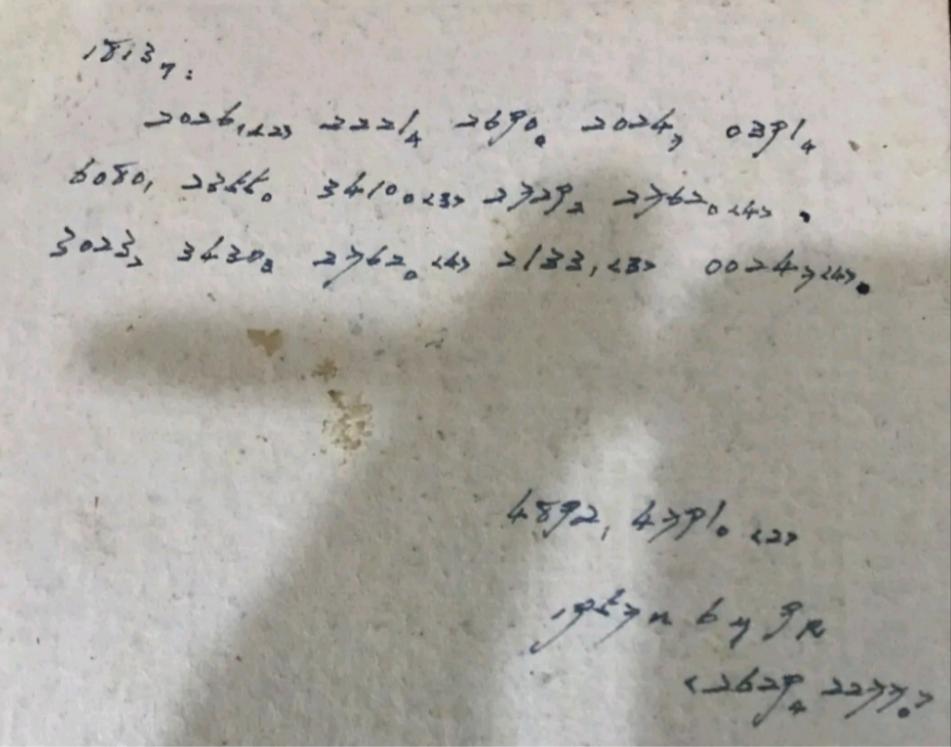 1813₇:
2026₁<2> 2221₄ 2690₀ 2024₇ 0391₄
6080₁ 2355₀ 3410₀<3> 2729₂ 2762₀<4>.
3023₂ 3430₃ 2762₀<4> 2133₁<3> 0024₇<4>.
4892₁ 4791₀<2>
1957n 6y 9R
<2629₄ 2277₀>